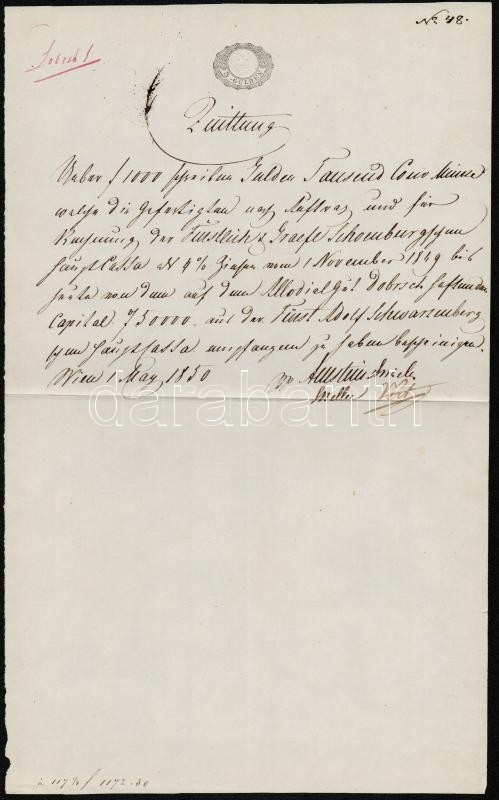 No 48.
Dobrsch
5 GULDEN
Quittung
Ueber f 1000 schreiben Gulden Tausend Conv Münze
welche die Gefertigten nach Auftrag und für
Rechnung der Fürstlich & Graefl Schoenburgschen
HauptCassa als 4% Zinsen vom 1 November 1849 bis
heute von dem auf dem Allodial Gut Dobrsch haftenden
Capital f 50000 aus der Fürst Adolf Schwarzenberg
schen HauptCassa empfangen zu haben bescheinigen.
Wien 1 May 1850
darabanth
à 117¼ f 1172.30